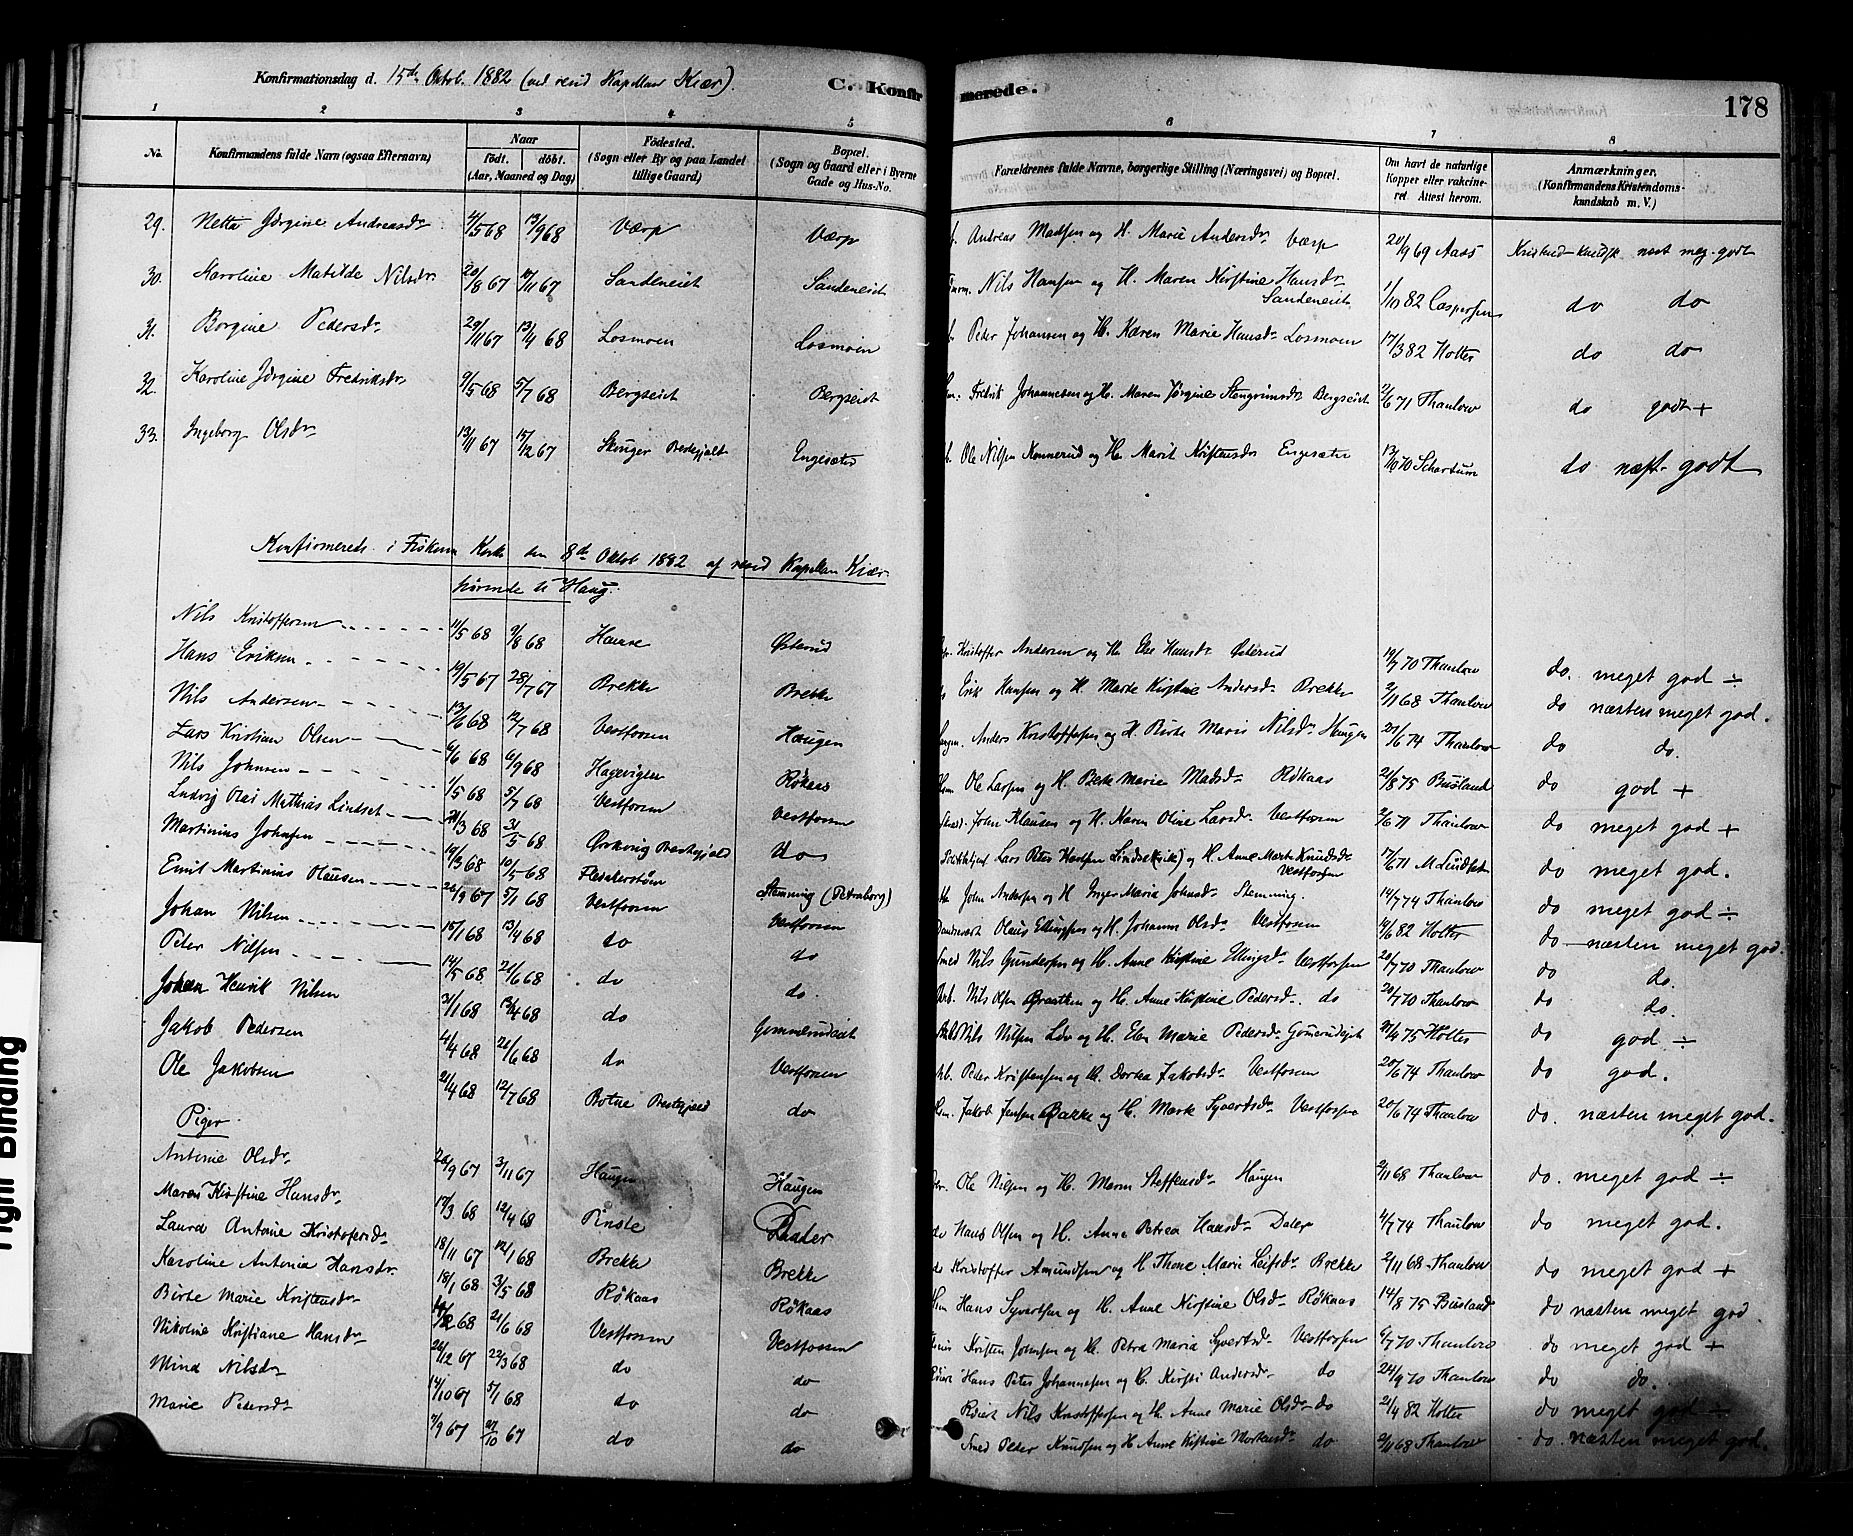 Konfirmationsdag d. 15de Oktob. 1882 (ved resid Kapellan Kiær).
C. Konfirmerede.
178
1 2 3 4 5 6 7 8
No.
Konfirmandens fulde Navn (ogsaa Efternavn)
Naar
födt. döbt.
(Aar, Maaned og Dag)
Födested.
(Sogn eller By og paa Landet
tillige Gaard)
Bopæl.
(Sogn og Gaard eller i Byerne
Gade og Hus-No.
Forældrenes fulde Navne, borgerlige Stilling (Næringsvei) og Bopæl.
Om havt de naturlige
Kopper eller vakcine-
ret Attest herom.
Anmærkninger.
(Konfirmandens Kristendoms-
kundskab m. V.)
29. Netta Jørgine Andreasdr 4/5 68 13/9 68 Værp Værp Andreas Madsen og H. Marie Andersdr Værp 20/9 69 Aass Kristend-kundsk. næst meg. godt
30. Karoline Matilde Nilsdr. 20/8 67 10/11 67 Sandeneiet Sandeneiet Nils Hansen og H. Maren Kirstine Hansdr Sandeneiet 1/10 82 Caspersen do do
31. Borgine Pedersdr 29/11 67 13/4 68 Losmoen Losmoen Peter Johansen og H. Karen Marie Hansdr Losmoen 17/3 82 Holter do do
32. Karoline Jørgine Fredriksdr 9/5 68 5/7 68 Bergseiet Bergseiet Fredrik Johannesen og H. Maren Jörgine Stengrimsdr Bergseiet 2/6 71 Thaulow do godt +
33. Ingeborg Olsdr 13/11 67 15/12 67 Skouger Prestegjeld Engesæter Ole Nilsen Konnerud og H. Marit Kristensdr Engesæter 13/10 70 Schartum do næst godt
Konfirmerede i Fiskum Kirke den 8de Oktob 1882 af resid Kapellan Kiær
hørende til Haug.
Nils Kristoffersen 11/5 68 9/8 68 Haare Østerud Kristoffer Andersen og H. Else Hansdr Østerud 19/7 70 Thaulow do. meget god ÷
Hans Eriksen 19/5 67 28/7 67 Brekke Brekke Erik Hansen og H. Marte Kirstine Andersdr Brekke 2/11 68 Thaulow do næsten meget god.
Nils Andersen 13/6 68 12/7 68 Vestfossen Haugen Anders Kristoffersen og H. Birte Marie Nilsdr Haugen 21/6 74 Thaulow do do.
Lars Kristian Olsen 4/6 68 6/9 68 Hagevigen Røkaas Ole Larsen og H. Berte Marie Madsdr Røkaas 21/8 75 Busland do god +
Nils Johnsen 1/5 68 5/7 68 Vestfossen Vestfossen John Klausen og H. Karen Oline Larsdr Vestfossen 2/6 71 Thaulow do meget god +
Ludvig Olai Mathias Lindset 24/3 68 31/5 68 Ørkevig Prestegjeld do Lars Peter Karlsen Lindset(vik) og H. Anne Marte Knudsdr Vestfossen 17/6 71 M Lindset do meget god.
Martinius Johnsen 19/3 68 10/5 68 Flesakerstrøm Stemning (Petersborg) John Andersen og H Inger Maria Johnsdr Stemning. 14/7 74 Thaulow do meget god ÷
Emil Martinius Olausen 26/9 67 5/1 68 Vestfossen Vestfossen Olaus Ellingsen og H. Johanne Olsdr Vestfossen 19/6 82 Holter do næsten meget god.
Johan Nilsen 15/1 68 13/4 68 do do Smed Nils Gundersen og H. Anne Kirstine Ellingsdr Vestfossen 20/7 70 Thaulow do do.
Peter Nilsen 14/5 68 21/6 68 do do. Arb. Nils Olsen Braathen og H. Anne Kirstine Pedersdr do 20/7 70 Thaulow do do.
Johan Henrik Nilsen 31/1 68 13/4 68 do Gommerudeiet Nils Nilsen Lav og H. Elen Marie Pedersdr Gomerudejet 21/9 75 Holter do god ÷
Jakob Pedersen 4/4 68 21/6 68 do Vestfossen Peder Kristensen og H. Dortea Jakobsdr Vestfossen 20/6 74 Thaulow do god.
Ole Jakobsen 21/4 68 12/7 68 Botne Prestegjeld do Jakob Jensen Bakke og H. Marte Syvertsdr Vestfossen 20/6 74 Thaulow do. næsten meget god.
Piger.
Antonie Olsdr 20/9 67 3/11 67 Haugen Haugen Ole Nilsen og H. Maren Steffensdr Haugen 2/11 68 Thaulow do. meget god ÷
Maren Kirstine Hansdr 17/3 68 12/4 68 Pinsle Daaler Hans Olsen og H. Anne Petrea Hansdr Daler 4/7 74 Thaulow do meget god.
Laura Antonie Kristofersdr 18/11 67 12/1 68 Brekke Brekke Kristoffer Amundsen og H Thone Marie Leifsdr Brekke 2/11 68 Thaulow do meget god +
Karoline Antonia Hansdr. 18/1 68 3/5 68 Røkaas Røkaas Hans Syvertsen og H. Anne Kirstine Olsdr Røkaas 14/8 75 Busland do næsten meget god.
Birte Marie Kristensdr 2 68 21/6 68 Vestfossen Vestfossen Kristen Johnsen og H. Petra Maria Syvertsdr Vestfossen 6/7 70 Thaulow do meget god +
Nikoline Kristiane Hansdr 26/12 67 22/3 68 do do Hans Peter Johannesen og H. Kirsti Andersdr do 24/9 70 Thaulow do do.
Mina Nilsdr 14/10 67 5/1 68 do do Nils Kristoffersen og H. Anne Marie Olsdr do 21/4 82 Holter do meget god ÷
Marie Pedersdr 7/9 67 27/10 67 do do Smed Peder Knudsen og H Anne Kirstine Mortensdr do 2/11 68 Thaulow do. næsten meget god.
Tight Binding